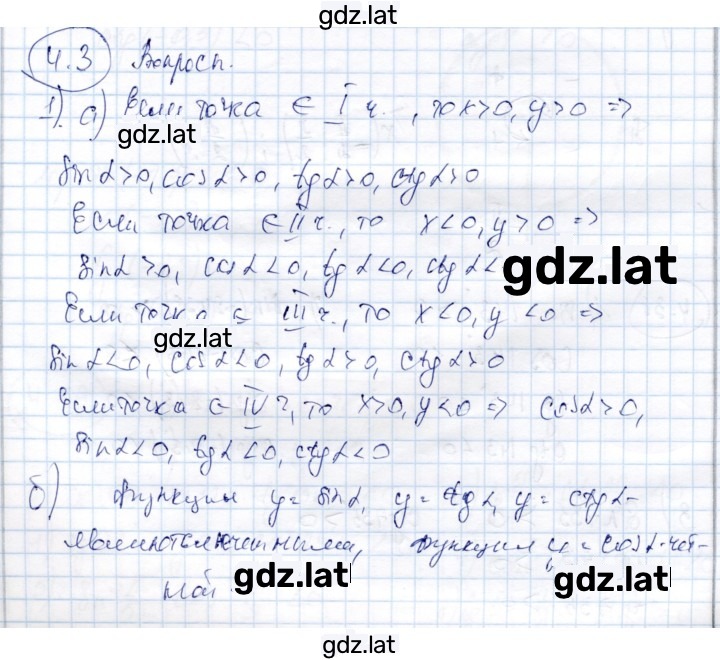 gdz.lat
4.3 Вопросы.
1). а) Если точка ∈ I ч., то x>0, y>0 =>
gdz.lat
sin α>0, cos α>0, tg α>0, ctg α>0
Если точка ∈ II ч., то x<0, y>0 =>
sin α>0, cos α<0, tg α<0, ctg α<
gdz.lat
Если точка ∈ III ч., то x<0, y<0 =>
gdz.lat
sin α<0, cos α<0, tg α>0, ctg α>0
Если точка ∈ IV ч, то x>0, y<0 => cos α>0,
sin α<0, tg α<0, ctg α<0
б) Функции y = sin α, y = tg α, y = ctg α -
функция y = cos α - чет-
ной.
gdz.lat
gdz.lat
gdz.lat